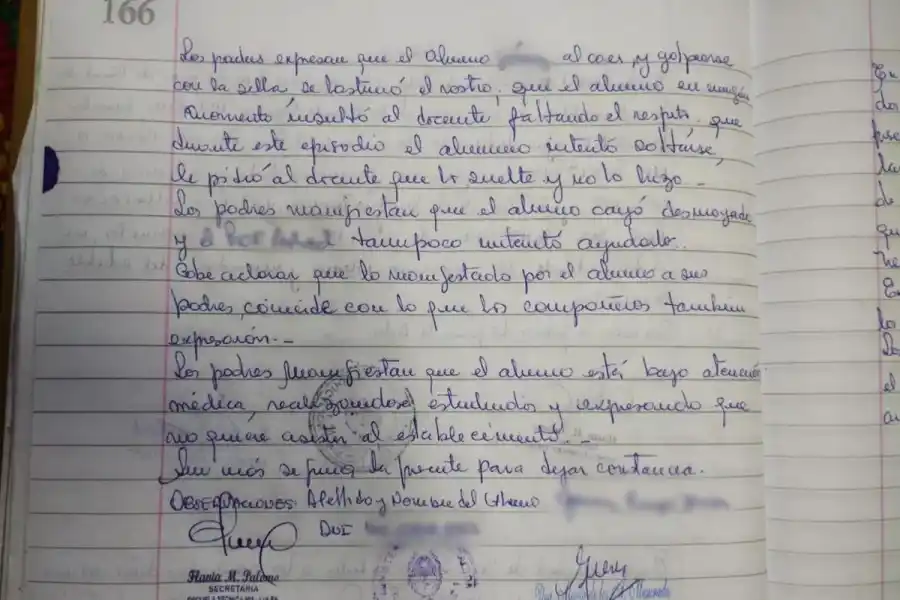 166
Los padres expresan que el alumno al caer y golpearse
con la silla se lastimó el rostro, que el alumno en ningún
momento insultó al docente faltando el respeto, que
durante este episodio el alumno intentó soltarse,
le pidió al docente que lo suelte y no lo hizo.-
Los padres manifiestan que el alumno cayó desmayado
y tampoco intentó ayudarlo.
Cabe aclarar que lo manifestado por el alumno a sus
padres, coincide con lo que los compañeros también
expresaron.-
Los padres manifiestan que el alumno está bajo atención
médica, realizandose estudios y expresando que
no quiere asistir al establecimiento.-
Sin más se firma la presente para dejar constancia.
OBSERVACIONES: Apellido y Nombre del Alumno
DNI
Flavia M. Palomo
SECRETARIA